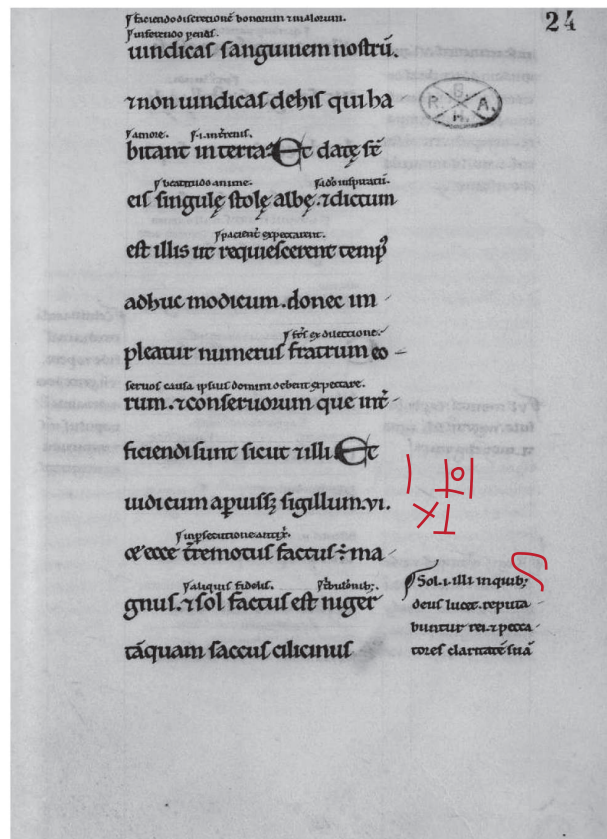 24
ỿ faciendo discretionē bonorum ⁊ malorum.
ỿ inferendo penas.
uindicas sanguinem nostrū.
R. B. A. M.
⁊ non uindicas de his qui ha
ỿ amore. ỿ .i. intrenis.
bitant in terra? Et datę sť
ỿ beatitudo anime.
eis singulę stolę albę. ⁊ dictum
ỿ pacient expectarent.
est illis ut requiescerent temp̄
adhuc modicum. donec im
ỿ frs̄ ex dilectione.
pleatur numerus fratrum eo
seruos causa ipsius domini debent expectare.
rum. ⁊ conseruorum que int̄
ficiendi sunt sicut ⁊ illi. Et
uidi cum aꝑuissꝫ sigillum .vi.
ỿ in ꝑsecutione antix̄.
ce ecce t̄remotus factus ÷ ma
ỿ aliquis fidelis. ỿ t̄butōnibꝫ.
gnus. ⁊ sol factus est niger
tāquam saccus cilicinus
ỿ Sol .i. illi in quibꝫ
deus lucet. reputa
buntur rei. ⁊ pecca
tores claritatē suā